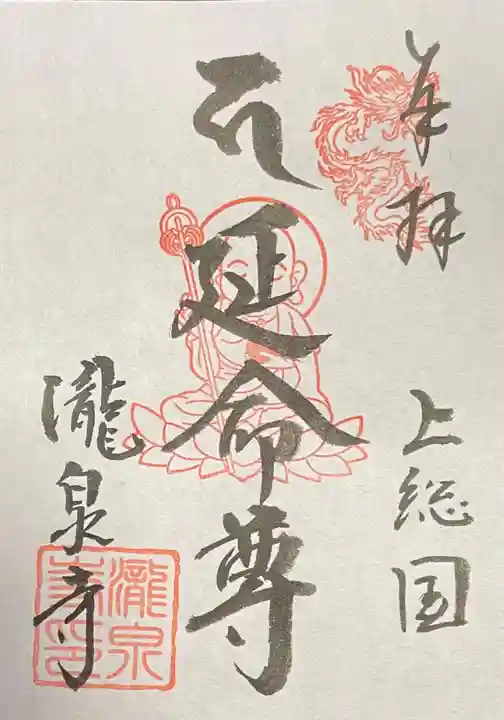 奉拝
上総国
𑖮 延命尊
瀧泉寺
瀧泉
寺印